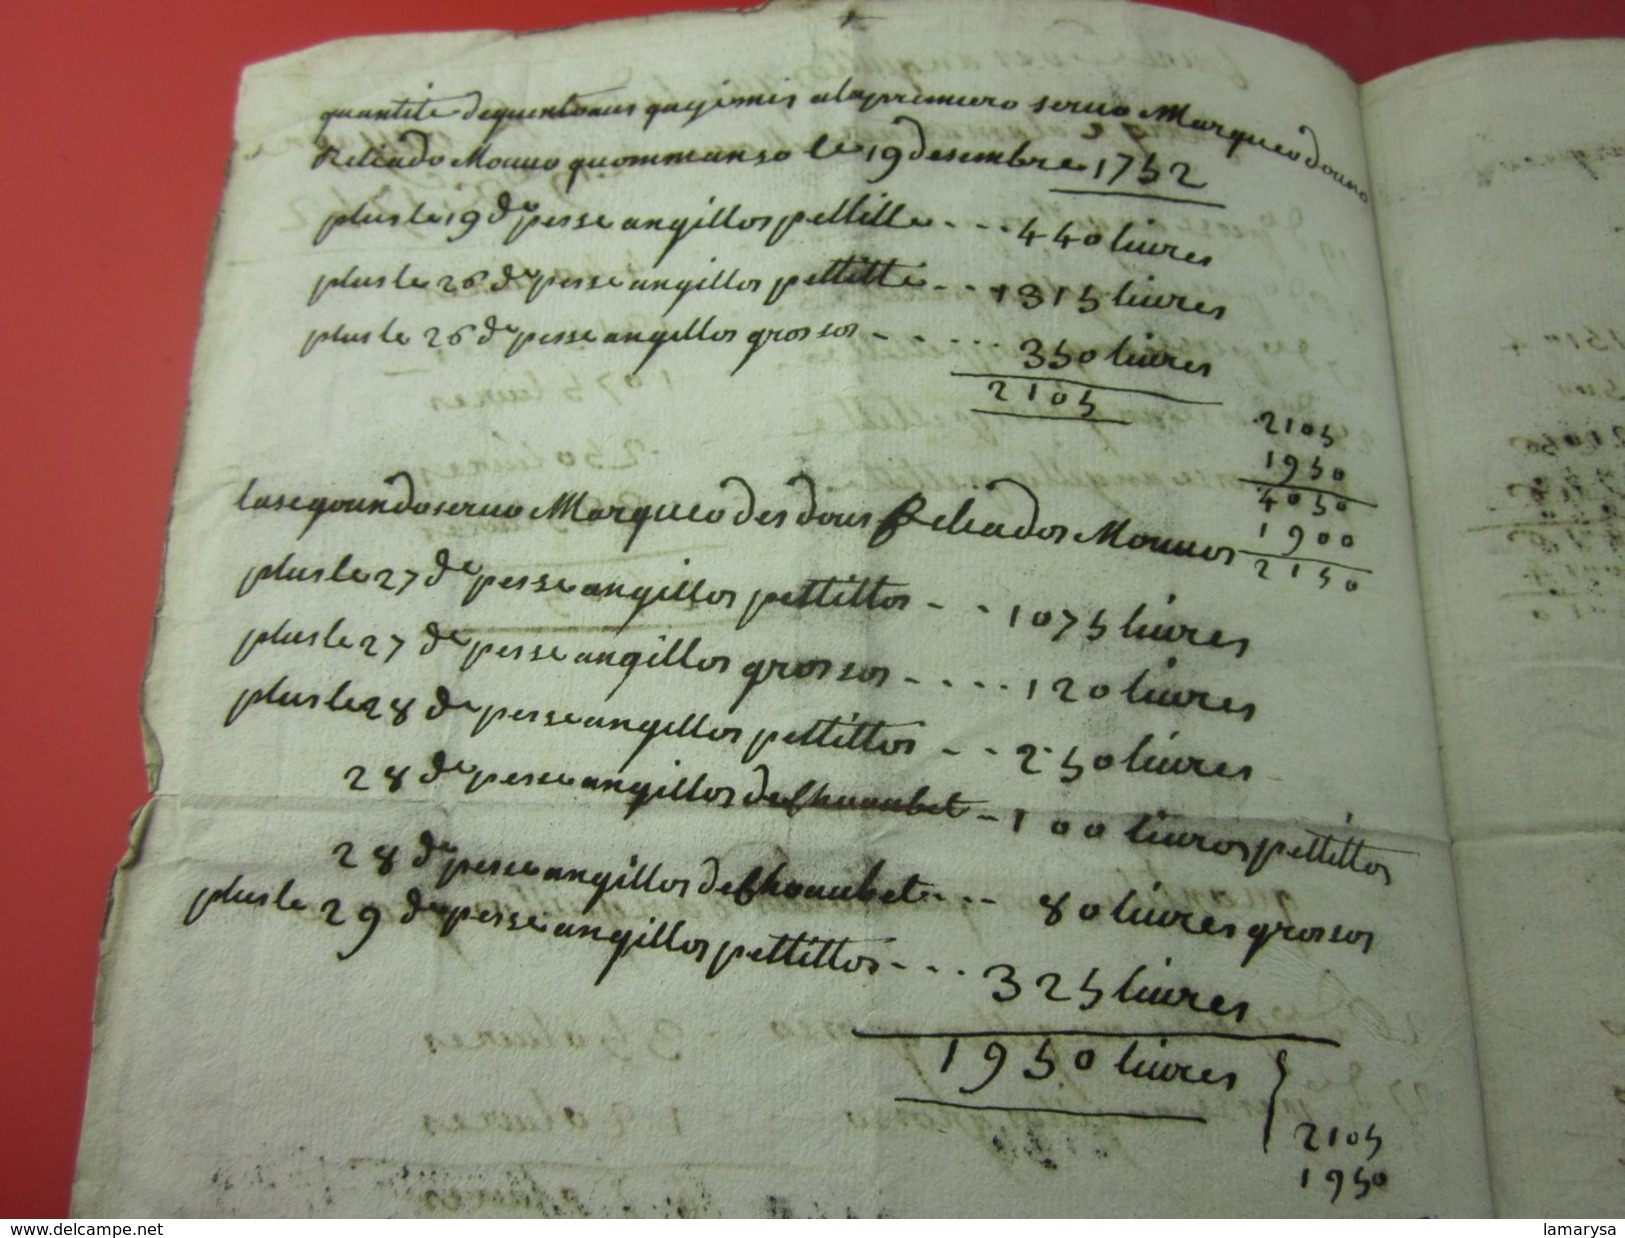 quantite dequintaus qagi mis alapremiero servo Marqueo douno
Reliado Mouno quommanso le 19 desembre 1752
plus le 19 de pesse angillos pettitte - - - 440 livres
plus le 26 de pesse angillos pettitte - - - 1315 livres
plus le 26 de pesse angillos grossos - - - - - - 350 livres
2105
2105
1950
4050
1900
2150
lasegoundo servo Marqueo des dous Reliados Mounos
plus le 27 de pesse angillos pettittos - - 1075 livres
plus le 27 de pesse angillos grossos - - - - - 120 livres
plus le 28 de pesse angillos pettittos - - - 250 livres
28 de pesse angillos de - 100 livros pettittos
28 de pesse angillos de - - - 80 livres grossos
plus le 29 de pesse angillos pettittos - - - - 325 livres
1950 livres
2105
1950
www.delcampe.net
lamarysa